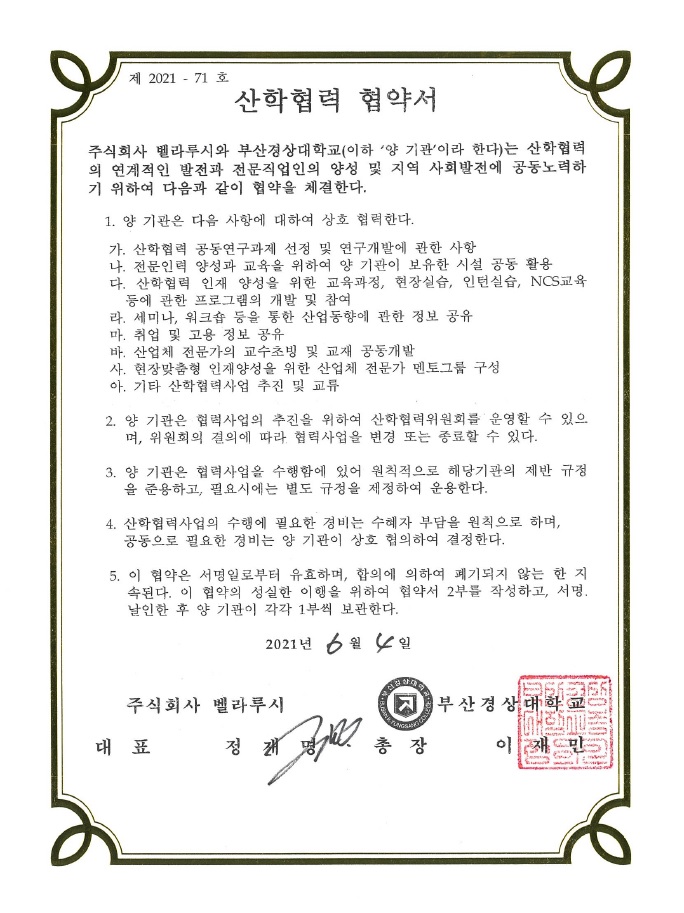 제 2021 - 71 호
산학협력 협약서
주식회사 벨라루시와 부산경상대학교(이하 '양 기관'이라 한다)는 산학협력
의 연계적인 발전과 전문직업인의 양성 및 지역 사회발전에 공동노력하
기 위하여 다음과 같이 협약을 체결한다.
1. 양 기관은 다음 사항에 대하여 상호 협력한다.
가. 산학협력 공동연구과제 선정 및 연구개발에 관한 사항
나. 전문인력 양성과 교육을 위하여 양 기관이 보유한 시설 공동 활용
다. 산학협력 인재 양성을 위한 교육과정, 현장실습, 인턴실습, NCS교육
등에 관한 프로그램의 개발 및 참여
라. 세미나, 워크숍 등을 통한 산업동향에 관한 정보 공유
마. 취업 및 고용 정보 공유
바. 산업체 전문가의 교수초빙 및 교재 공동개발
사. 현장맞춤형 인재양성을 위한 산업체 전문가 멘토그룹 구성
아. 기타 산학협력사업 추진 및 교류
2. 양 기관은 협력사업의 추진을 위하여 산학협력위원회를 운영할 수 있으
며, 위원회의 결의에 따라 협력사업을 변경 또는 종료할 수 있다.
3. 양 기관은 협력사업을 수행함에 있어 원칙적으로 해당기관의 제반 규정
을 준용하고, 필요시에는 별도 규정을 제정하여 운용한다.
4. 산학협력사업의 수행에 필요한 경비는 수혜자 부담을 원칙으로 하며,
공동으로 필요한 경비는 양 기관이 상호 협의하여 결정한다.
5. 이 협약은 서명일로부터 유효하며, 합의에 의하여 폐기되지 않는 한 지
속된다. 이 협약의 성실한 이행을 위하여 협약서 2부를 작성하고, 서명.
날인한 후 양 기관이 각각 1부씩 보관한다.
2021년 6 월 4 일
주식회사 벨라루시 부산경상대학교
대 표 정 명 총 장 이 재 민
부산경상대학교